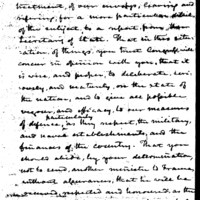 treatment, of our envoys, leaving and
referring, for a more particular
of this subject, to a report from the
Secretary of State. That in this situ-
ation of things, you trust Congress will
concur in opinion with you, that it
is wise, and proper, to deliberate, seri-
ously, and maturely, on the state of
the nation, and to give all possible
vigour, and efficacy, to our measures
particularly
of defence; as they respect, the military,
and naval establishments, and the
finances of the country. That you
should abide, by your determination,
not to send, another minister to France,
without assurances, that he will be
received, respected and honoured, as the